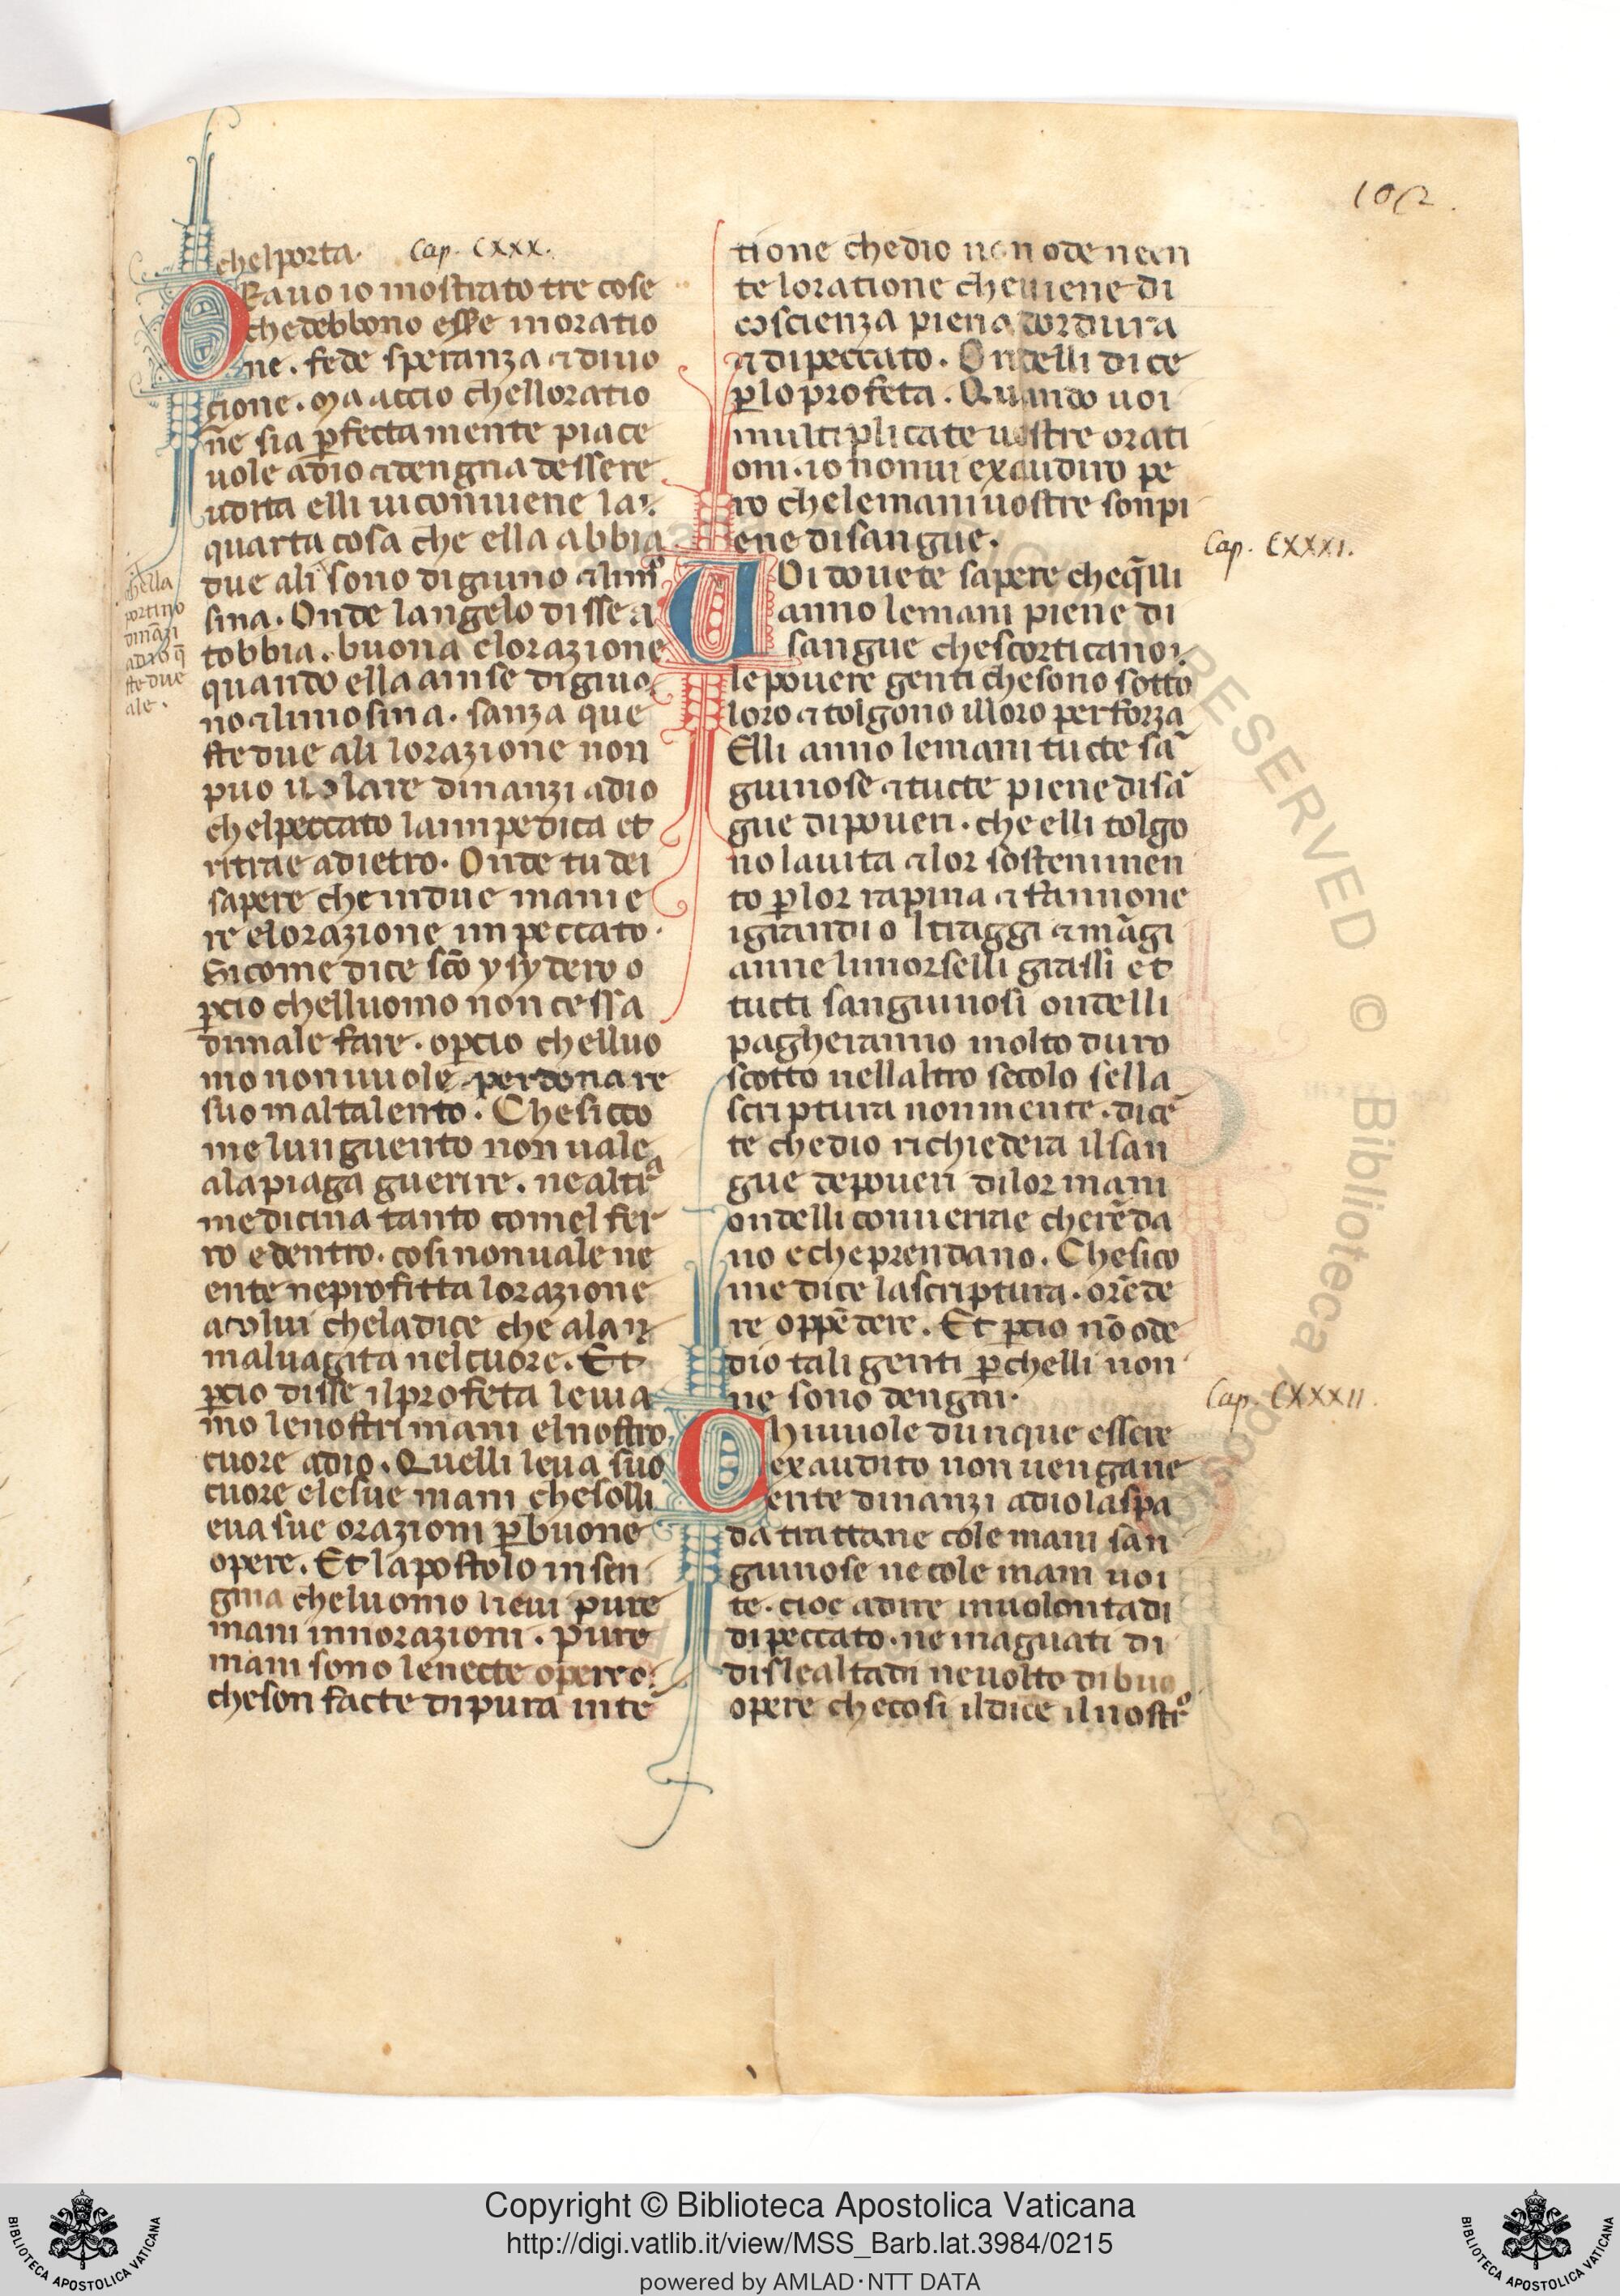 102.
chelporta. Cap. CXXX.
ORauo io mostrato tre cose
che debbono esse inoratio
ne. fede speranza ⁊ diuo
cione. Ma accio chelloratio
ne sia p̱fectamente piace
uole adio ⁊ dengna dessere
udita elli uiconuiene la
quarta cosa che ella abbia
due ali sono digiuno ⁊ limo
sina. Onde langelo disse a
tobbia. buona e lorazione
quando ella a in se digiu
no ⁊ limosina. sanza que
ste due ali lorazione non
puo uolare dinanzi adio
chelpeccato lainpedica et
ritrae adietro. Onde tu dei
sapere che indue manie
re e lorazione inpeccato.
Sicome dice sc̄o ysydero o
p̱cio chelluomo non cessa
dimale fare. o p̱cio chelluo
mo non uuole perdonare
suo maltalento. Che sicco
me lunguento non uale
ala piaga guerire. ne altra
medicina tanto comel fer
ro e dentro. cosi non uale ne
ente ne profitta lorazione
acolui che la dice che a la
maluagita nel cuore. Et
p̱cio disse il profeta leuia
mo le nostri mani el nostro
cuore adio. Quelli leua suo
cuore e le sue mani che solli
eua sue orazioni p̱ buone
opere. Et lapostolo insen
gnia cheluomo lieui pure
mani innorazioni. pure
mani sono le necte opere
che son facte di pura inte
chella
portino
dināzi
adio q̄
ste due
ale.
tione che dio non ode neen
te loratione che uiene di
coscienza piena dordura
⁊ di peccato. Ondelli dice
p̱ lo profeta. Quando uoi
multiplicate uostre orati
oni. io nonui exaudiro pe
ro che le mani uostre son pi
ene di sangue.
Cap. CXXXI.
UOi douete sapere che q̄lli
anno le mani piene di
sangue che scorticano
le pouere genti che sono sotto
loro ⁊ tolgono illoro per forza
Elli anno le mani tucte sā
guinose ⁊ tucte piene di sā
gue di poueri. che elli tolgo
no la uita ⁊ lor sostenimen
to p̱ lor rapina ⁊ fannone
igrandi oltraggi ⁊ māgi
anne li morselli grassi et
tucti sanguinosi ondelli
pagheranno molto duro
scotto nellaltro secolo sella
scriptura non mente. dicē
te che dio richiedera il san
gue de poueri di lor mani
ondelli conuerrae che rēda
no e che prendano. Che sico
me dice la scriptura. o rēde
re o ppēdere. Et p̱cio nō ode
dio tali genti p̱ chelli non
ne sono dengni.
Cap. CXXXII.
Chi uuole dunque essere
exaudito non uenga ne
ente dinanzi adio la spa
da tratta ne cole mani san
guinose ne cole mani uoi
te. cioe a dire in uolontadi
di peccato. ne in aguati di
di slealtadi ne uolto di buo
opere che cosi il dice il nostro
Copyright © Biblioteca Apostolica Vaticana
http://digi.vatlib.it/view/MSS_Barb.lat.3984/0215
powered by AMLAD·NTT DATA
BIBLIOTECA APOSTOLICA VATICANA
BIBLIOTECA APOSTOLICA VATICANA